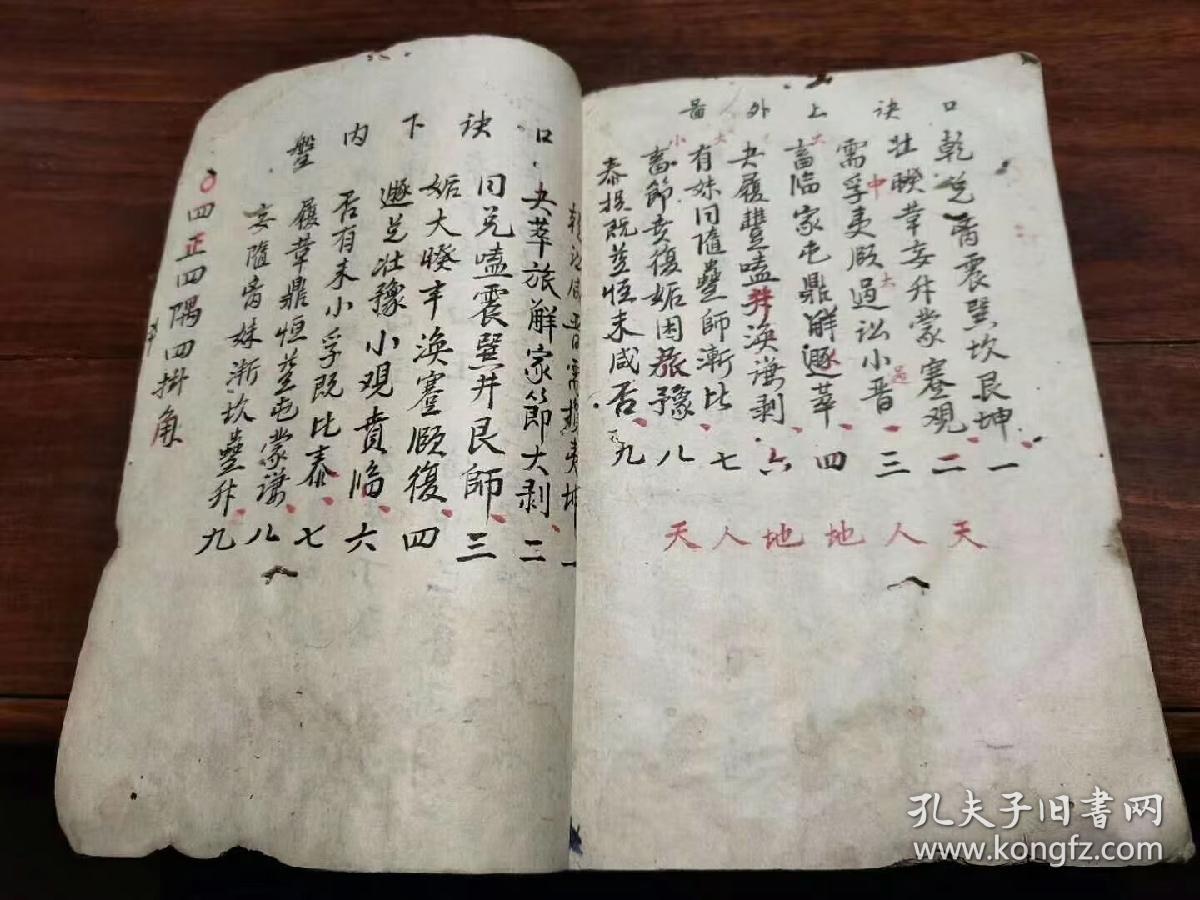 口诀上外畐
乾兑离震巽坎艮坤、一
壮睽革妄升蒙蹇观、二
需中孚夷颐大过讼小过晋、三
大畜临家屯鼎解遯萃、四
夬履豐嗑井涣谦剥、六
大有妹同隨蠱師漸比、七
小畜節賁復姤困旅豫、八
泰损既益恒未咸否、九
天人地地人天
口诀下内盤
夬萃旅解家節大剥、二
同兑嗑震巽井艮師、三
姤大睽丰涣蹇颐復、四
遯兑壮豫小观賁临、六
否有未小孚既比泰、七
履革鼎恒益屯蒙谦、八
妄隨晋妹漸坎蠱升、九
〇四正四隅四掛角
孔夫子旧书网
www.kongfz.com